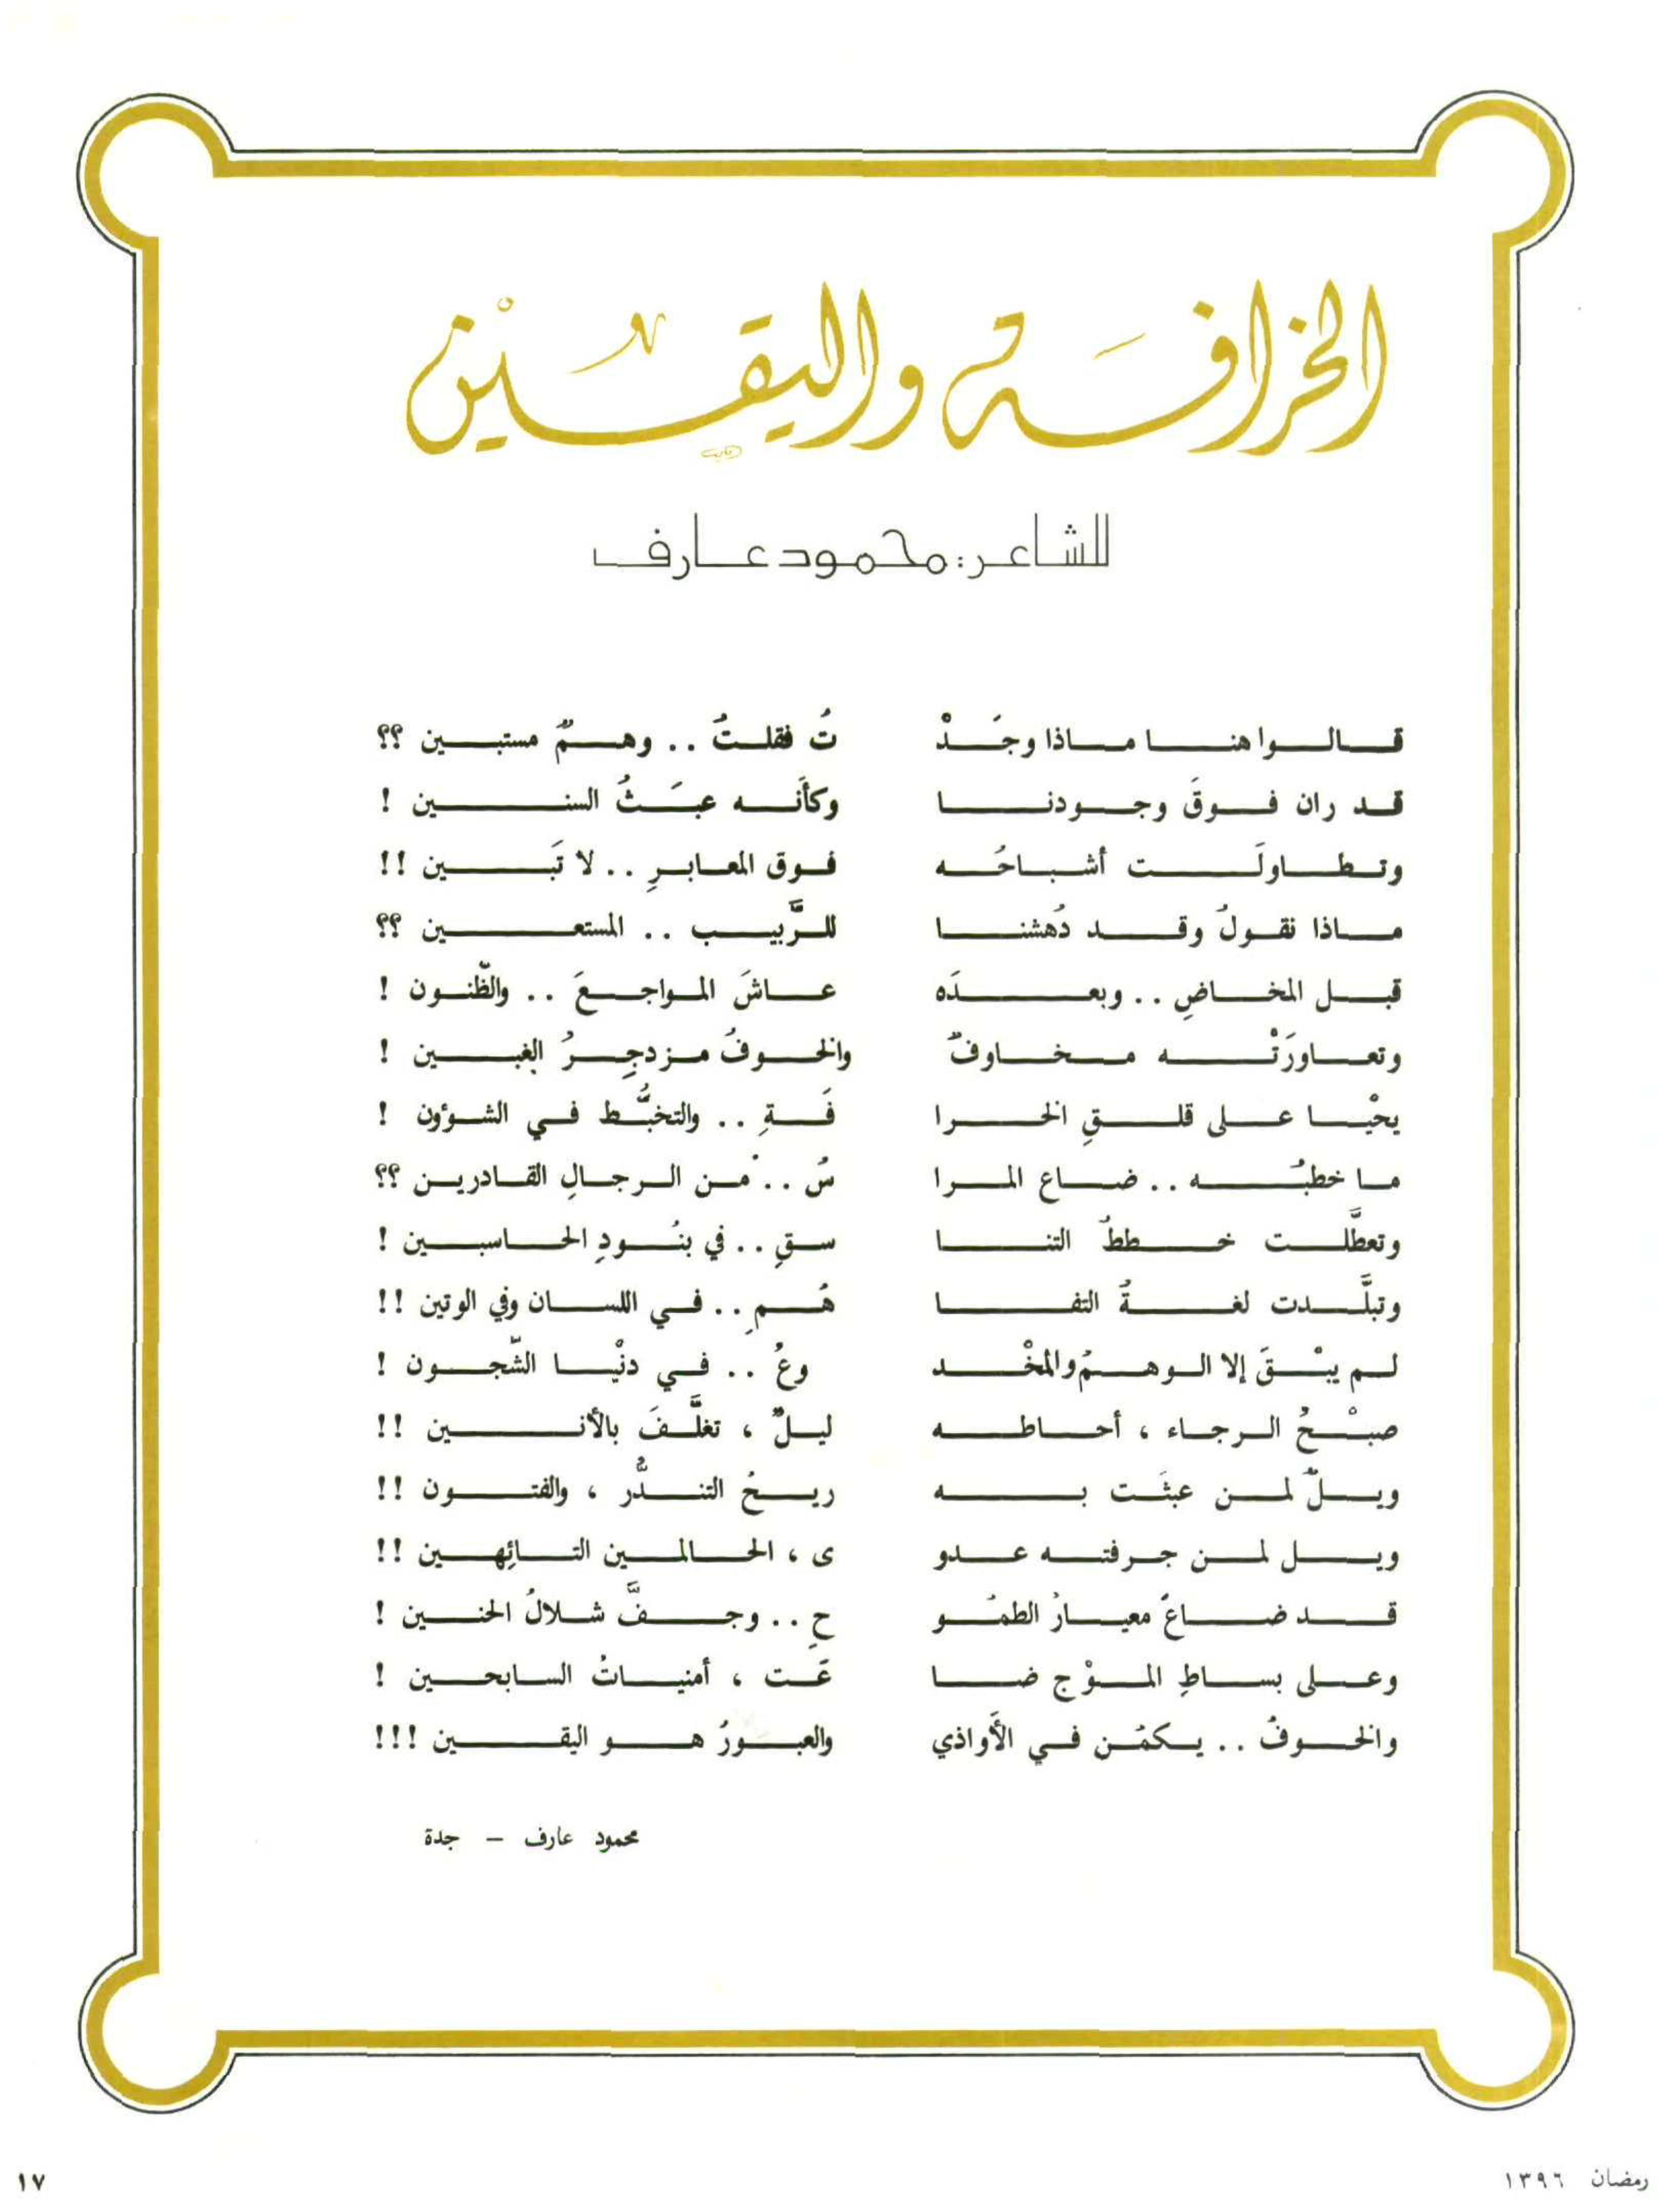 الخرافة واليقين
للشاعر: محمود عارف
قالوا هنا ماذا وجَدْ تُ فقلتُ .. وهمٌ مستبين ؟؟
قد ران فوقَ وجودنا وكأنه عبَثُ السنين !
وتطاولَت أشباحُه فوق المعابرِ .. لا تَبين !!
ماذا نقولُ وقد دُهشنا للرَّبيب .. المستعين ؟؟
قبل المخاضِ .. وبعدَه عاشَ المواجعَ .. والظّنون !
وتعاورَتْه مخاوفٌ والخوفُ مزدجِرُ الغبين !
يحْيا على قلقِ الخرا فَةِ .. والتخبُّط في الشؤون !
ما خطبُه .. ضاع المرا سُ .. من الرجالِ القادرين ؟؟
وتعطَّلت خططُ التنا سقِ .. في بنُودِ الحاسبين !
وتبلَّدت لغةُ التفا هُمِ .. في اللسان وفي الوتين !!
لم يبْقَ إلا الوهمُ والمخْد وعُ .. في دنْيا الشّجون !
صبْحُ الرجاء ، أحاطه ليلٌ ، تغلَّفَ بالأنين !!
ويلٌ لمن عبثَت به ريحُ التندُّر ، والفتون !!
ويل لمن جرفته عدو ى ، الحالمين التائِهين !!
قد ضاعَ معيارُ الطمُو حِ .. وجفَّ شلالُ الحنين !
وعلى بساطِ الموْج ضا عَت ، أمنياتُ السابحين !
والخوفُ .. يكمُن في الأَواذي والعبورُ هو اليقين !!!
محمود عارف – جدة
رمضان ١٣٩٦
١٧